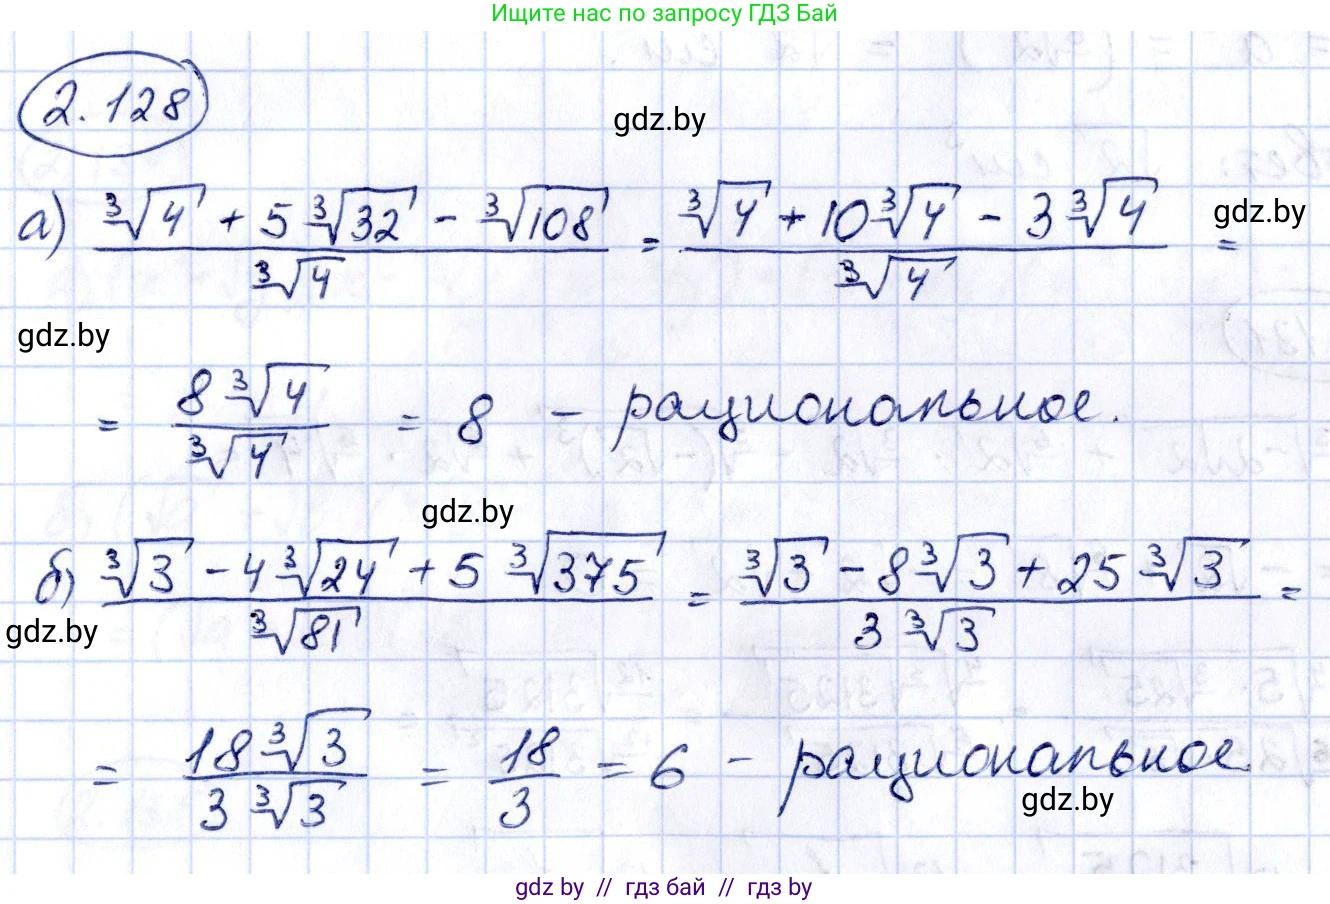 Ищите нас по запросу ГДЗ Бай
2.128
gdz.by
а) (∛4 + 5∛32 - ∛108)/∛4 = (∛4 + 10∛4 - 3∛4)/∛4 =
gdz.by
gdz.by
= 8∛4/∛4 = 8 - рациональное.
gdz.by
б) (∛3 - 4∛24 + 5∛375)/∛81 = (∛3 - 8∛3 + 25∛3)/3∛3 =
gdz.by
= 18∛3/3∛3 = 18/3 = 6 - рациональное
gdz.by
gdz by // гдз бай // гдз by